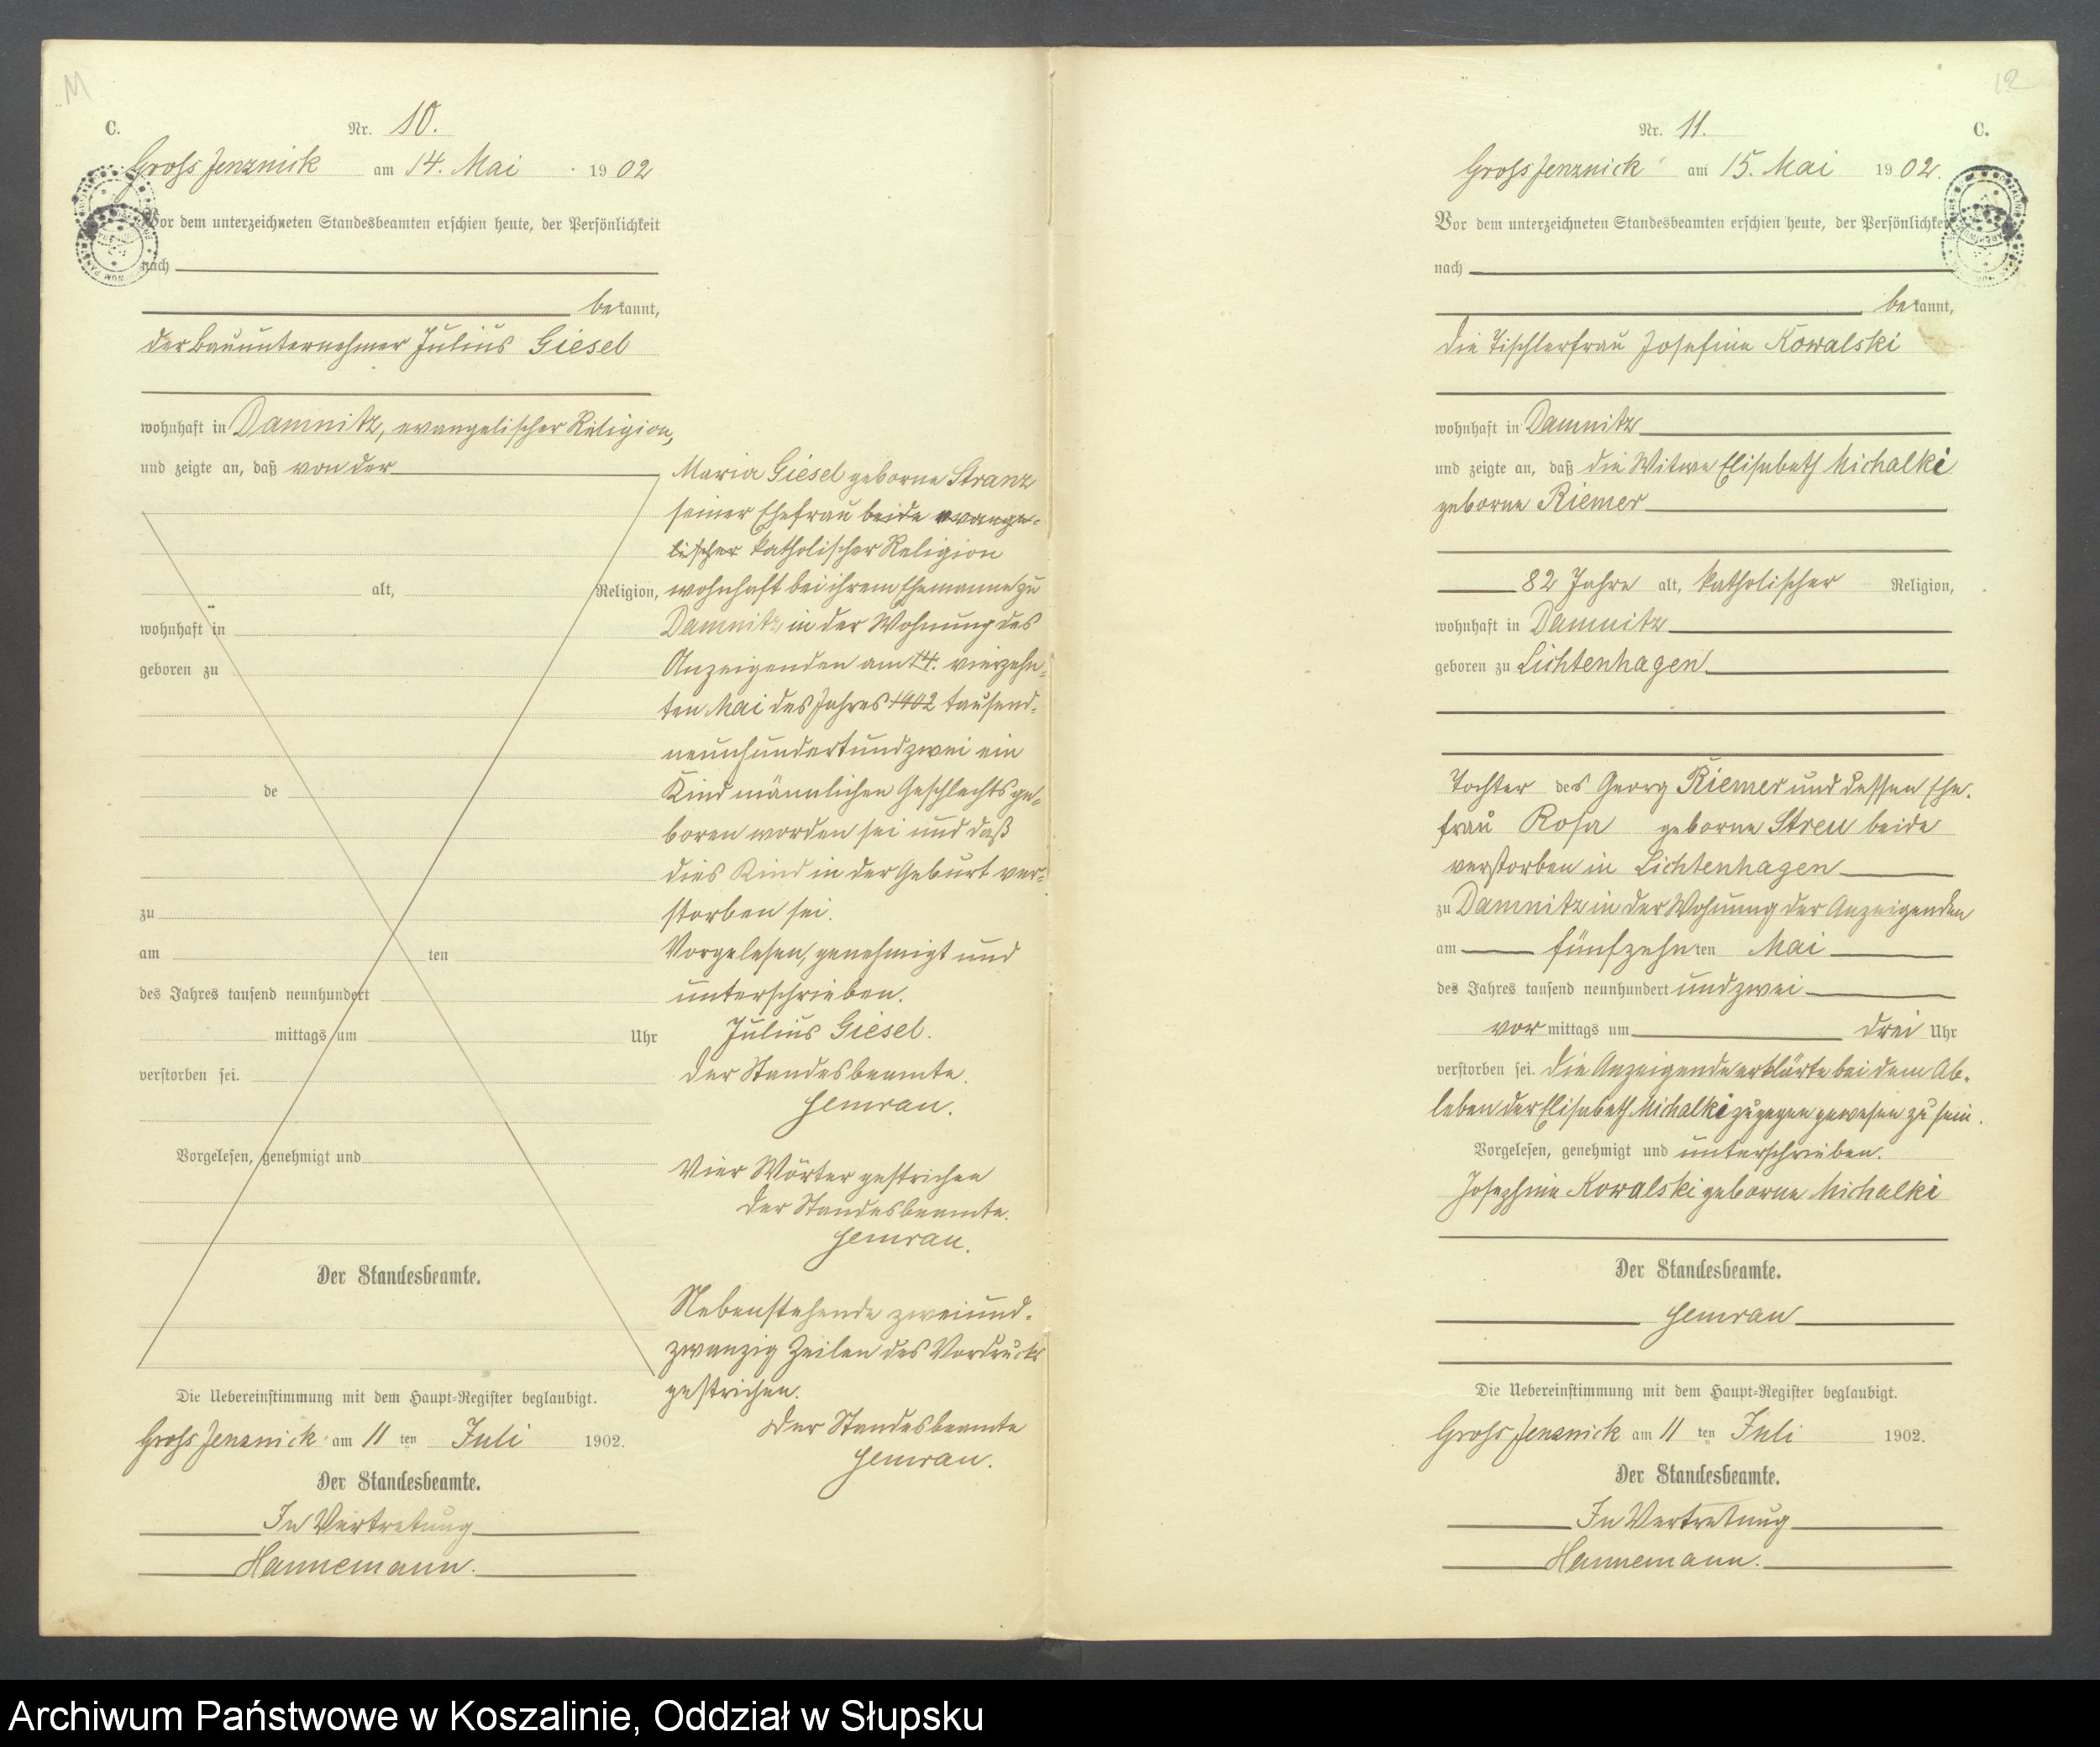 C.
Nr. 10.
Gross Jenznick am 14. Mai 1902
Vor dem unterzeichneten Standesbeamten erschien heute, der Persönlichkeit
nach
bekannt,
der Bauunternehmer Julius Giesel
wohnhaft in Damnitz, evangelischer Religion,
und zeigte an, daß von der
alt, Religion,
wohnhaft in
geboren zu
de
zu
am ten
des Jahres tausend neunhundert
mittags um Uhr
verstorben sei.
Vorgelesen, genehmigt und
Der Standesbeamte.
Die Uebereinstimmung mit dem Haupt-Register beglaubigt.
Gross Jenznick am 11 ten Juli 1902.
Der Standesbeamte.
In Vertretung
Hannemann.
Maria Giesel geborne Stranz
seiner Ehefrau beide evange-
lischer katholischer Religion
wohnhaft bei ihrem Ehemanne zu
Damnitz in der Wohnung des
Anzeigenden am 14. vierzehn-
ten Mai des Jahres 1902 tausend-
neunhundertundzwei ein
Kind männlichen Geschlechts ge-
boren worden sei und daß
dies Kind in der Geburt ver-
storben sei.
Vorgelesen, genehmigt und
unterschrieben.
Julius Giesel.
Der Standesbeamte.
Hemrau.
Vier Wörter gestrichen
Der Standesbeamte.
Hemrau.
Nebenstehende zweiund-
zwanzig Zeilen des Vordrucks
gestrichen.
Der Standesbeamte
Hemrau.
12
Nr. 11.
C.
Gross Jenznick am 15. Mai 1902.
Vor dem unterzeichneten Standesbeamten erschien heute, der Persönlichkei
nach
bekannt,
die Tischlerfrau Josefine Kowalski
wohnhaft in Damnitz
und zeigte an, daß die Witwe Elisabeth Michalki
geborne Riemer
82 Jahre alt, katholischer Religion,
wohnhaft in Damnitz
geboren zu Lichtenhagen
Tochter des Georg Riemer und dessen Ehe-
frau Rosa geborne Streu beide
verstorben in Lichtenhagen
zu Damnitz in der Wohnung der Anzeigenden
am fünfzehnten Mai
des Jahres tausend neunhundert undzwei
vor mittags um drei Uhr
verstorben sei. Die Anzeigende erklärte bei dem Ab-
leben der Elisabeth Michalki zugegen gewesen zu sein.
Vorgelesen, genehmigt und unterschrieben.
Josephine Kowalski geborne Michalki
Der Standesbeamte.
Hemrau
Die Uebereinstimmung mit dem Haupt-Register beglaubigt.
Gross Jenznick am 11 ten Juli 1902.
Der Standesbeamte.
In Vertretung
Hannemann.
Archiwum Państwowe w Koszalinie, Oddział w Słupsku